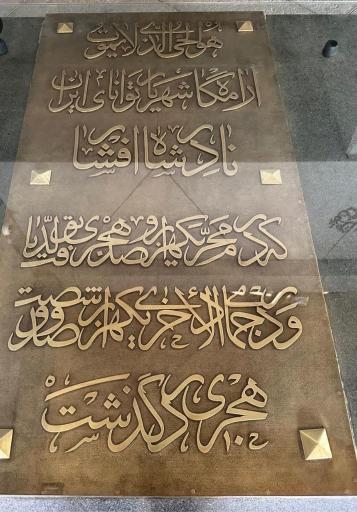 هو الحی الذی لایموت
آرامگاه شهریار توانای ایران
نادر شاه افشار
که در محرم یکهزار و صد هجری تولد یافت
و در جمادی الاخری یکهزار و صد و شصت
هجری درگذشت